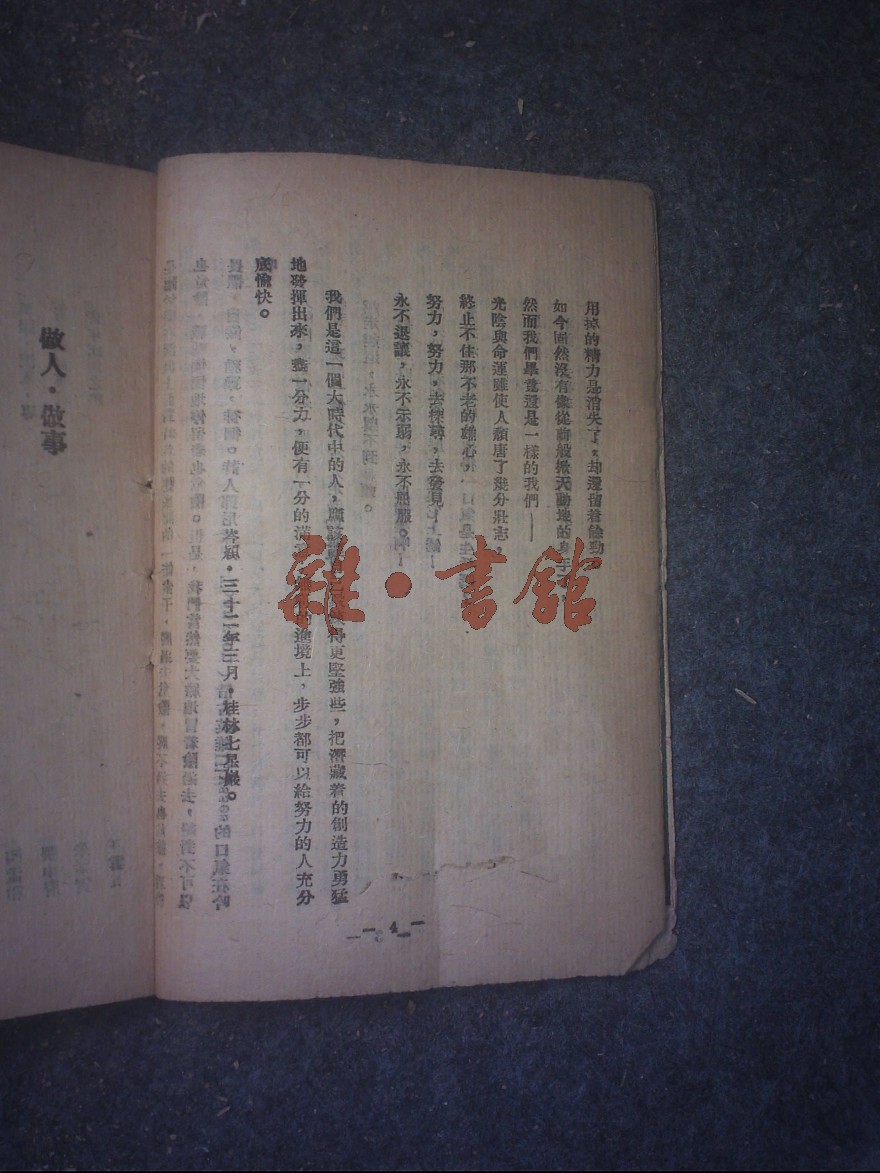 用掉的精力是消失了，却還留着餘勁
如今固然沒有像從前般掀天動地的身手，
然而我們畢竟還是一樣的我們——
光陰與命運雖使人頹唐了幾分壯志，
終止不住那不老的雄心，
努力，努力，去探尋，去發見！
永不退讓，永不示弱，永不屈服。
我們是這一個大時代中的人，應該得更堅強些，把潛藏着的創造力勇猛
地發揮出來，盡一分力，便有一分的滿的進境上，步步都可以給努力的人充分
底愉快。
三十二年三月，桂林七星巖。
— 4 —
做人·做事
雜·書館